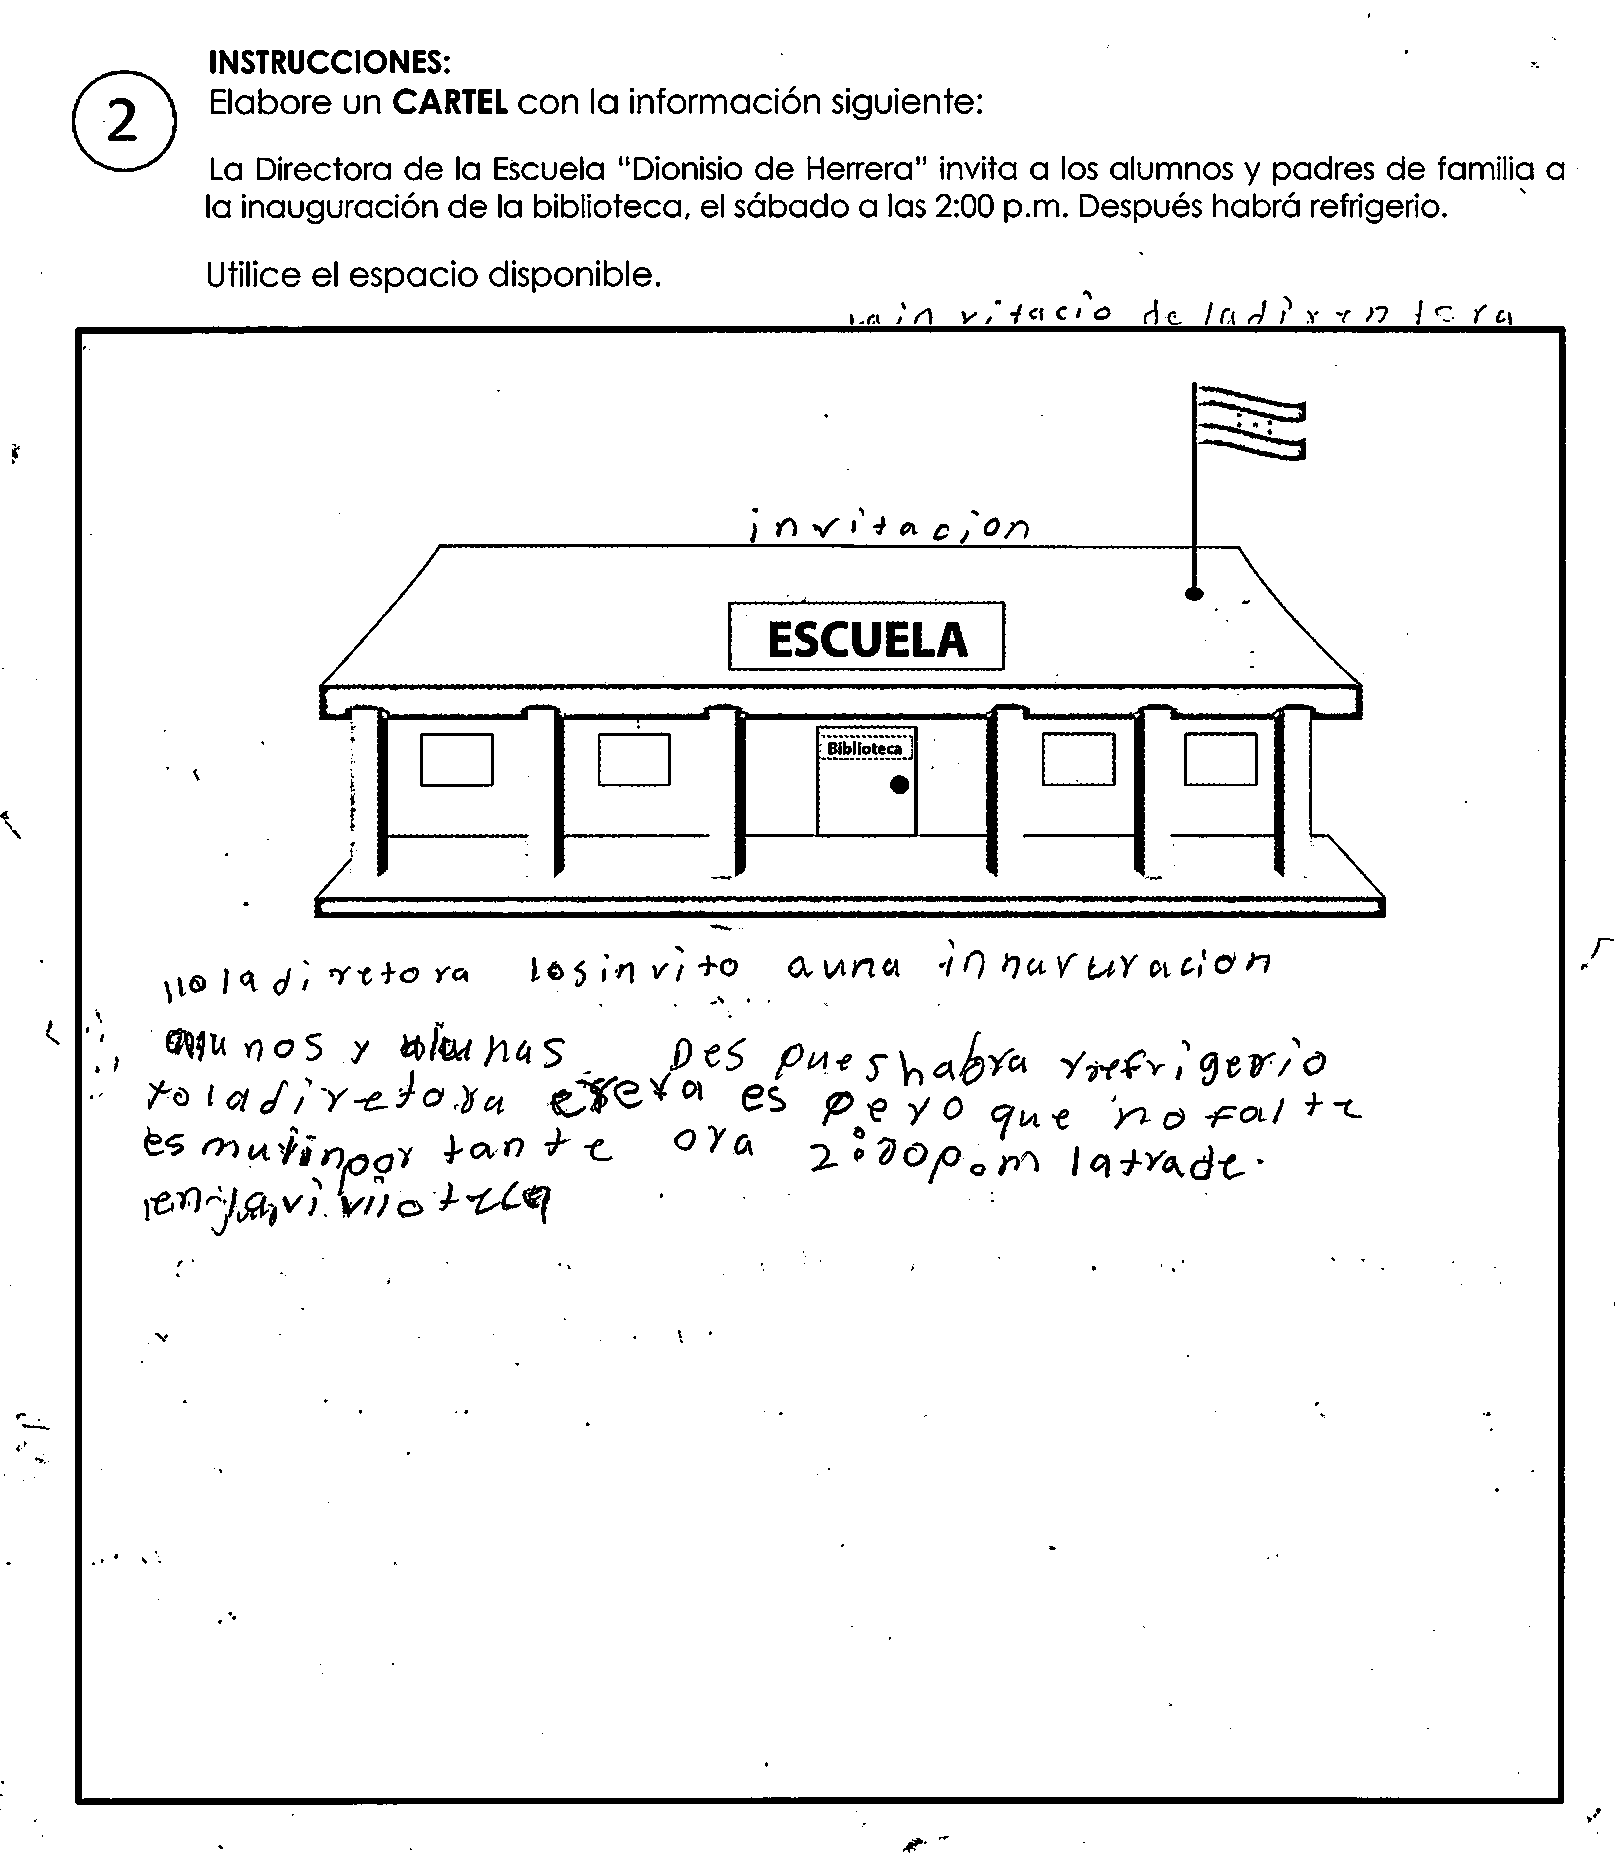 INSTRUCCIONES:
2
Elabore un CARTEL con la información siguiente:
La Directora de la Escuela "Dionisio de Herrera" invita a los alumnos y padres de familia a
la inauguración de la biblioteca, el sábado a las 2:00 p.m. Después habrá refrigerio.
Utilice el espacio disponible.
la in vitacio de la diren tora
invitacion
ESCUELA
Biblioteca
diretora losinvito auna innavuracion
y Des pues habra rrefrigerio
yo la diretora es pero que no falte
es muy inpor tante ora 2:00 p.m latrade.